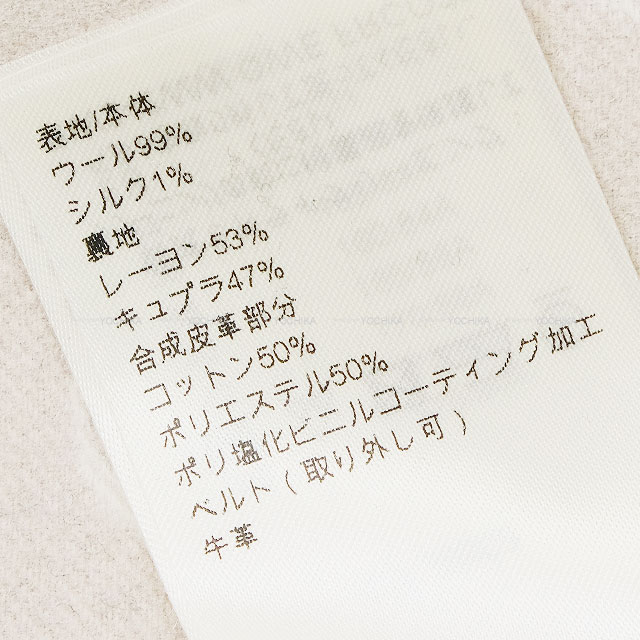 表地/本体
ウール99%
シルク1%
裏地
レーヨン53%
キュプラ47%
合成皮革部分
コットン50%
ポリエステル50%
ポリ塩化ビニルコーティング加工
ベルト(取り外し可)
牛革